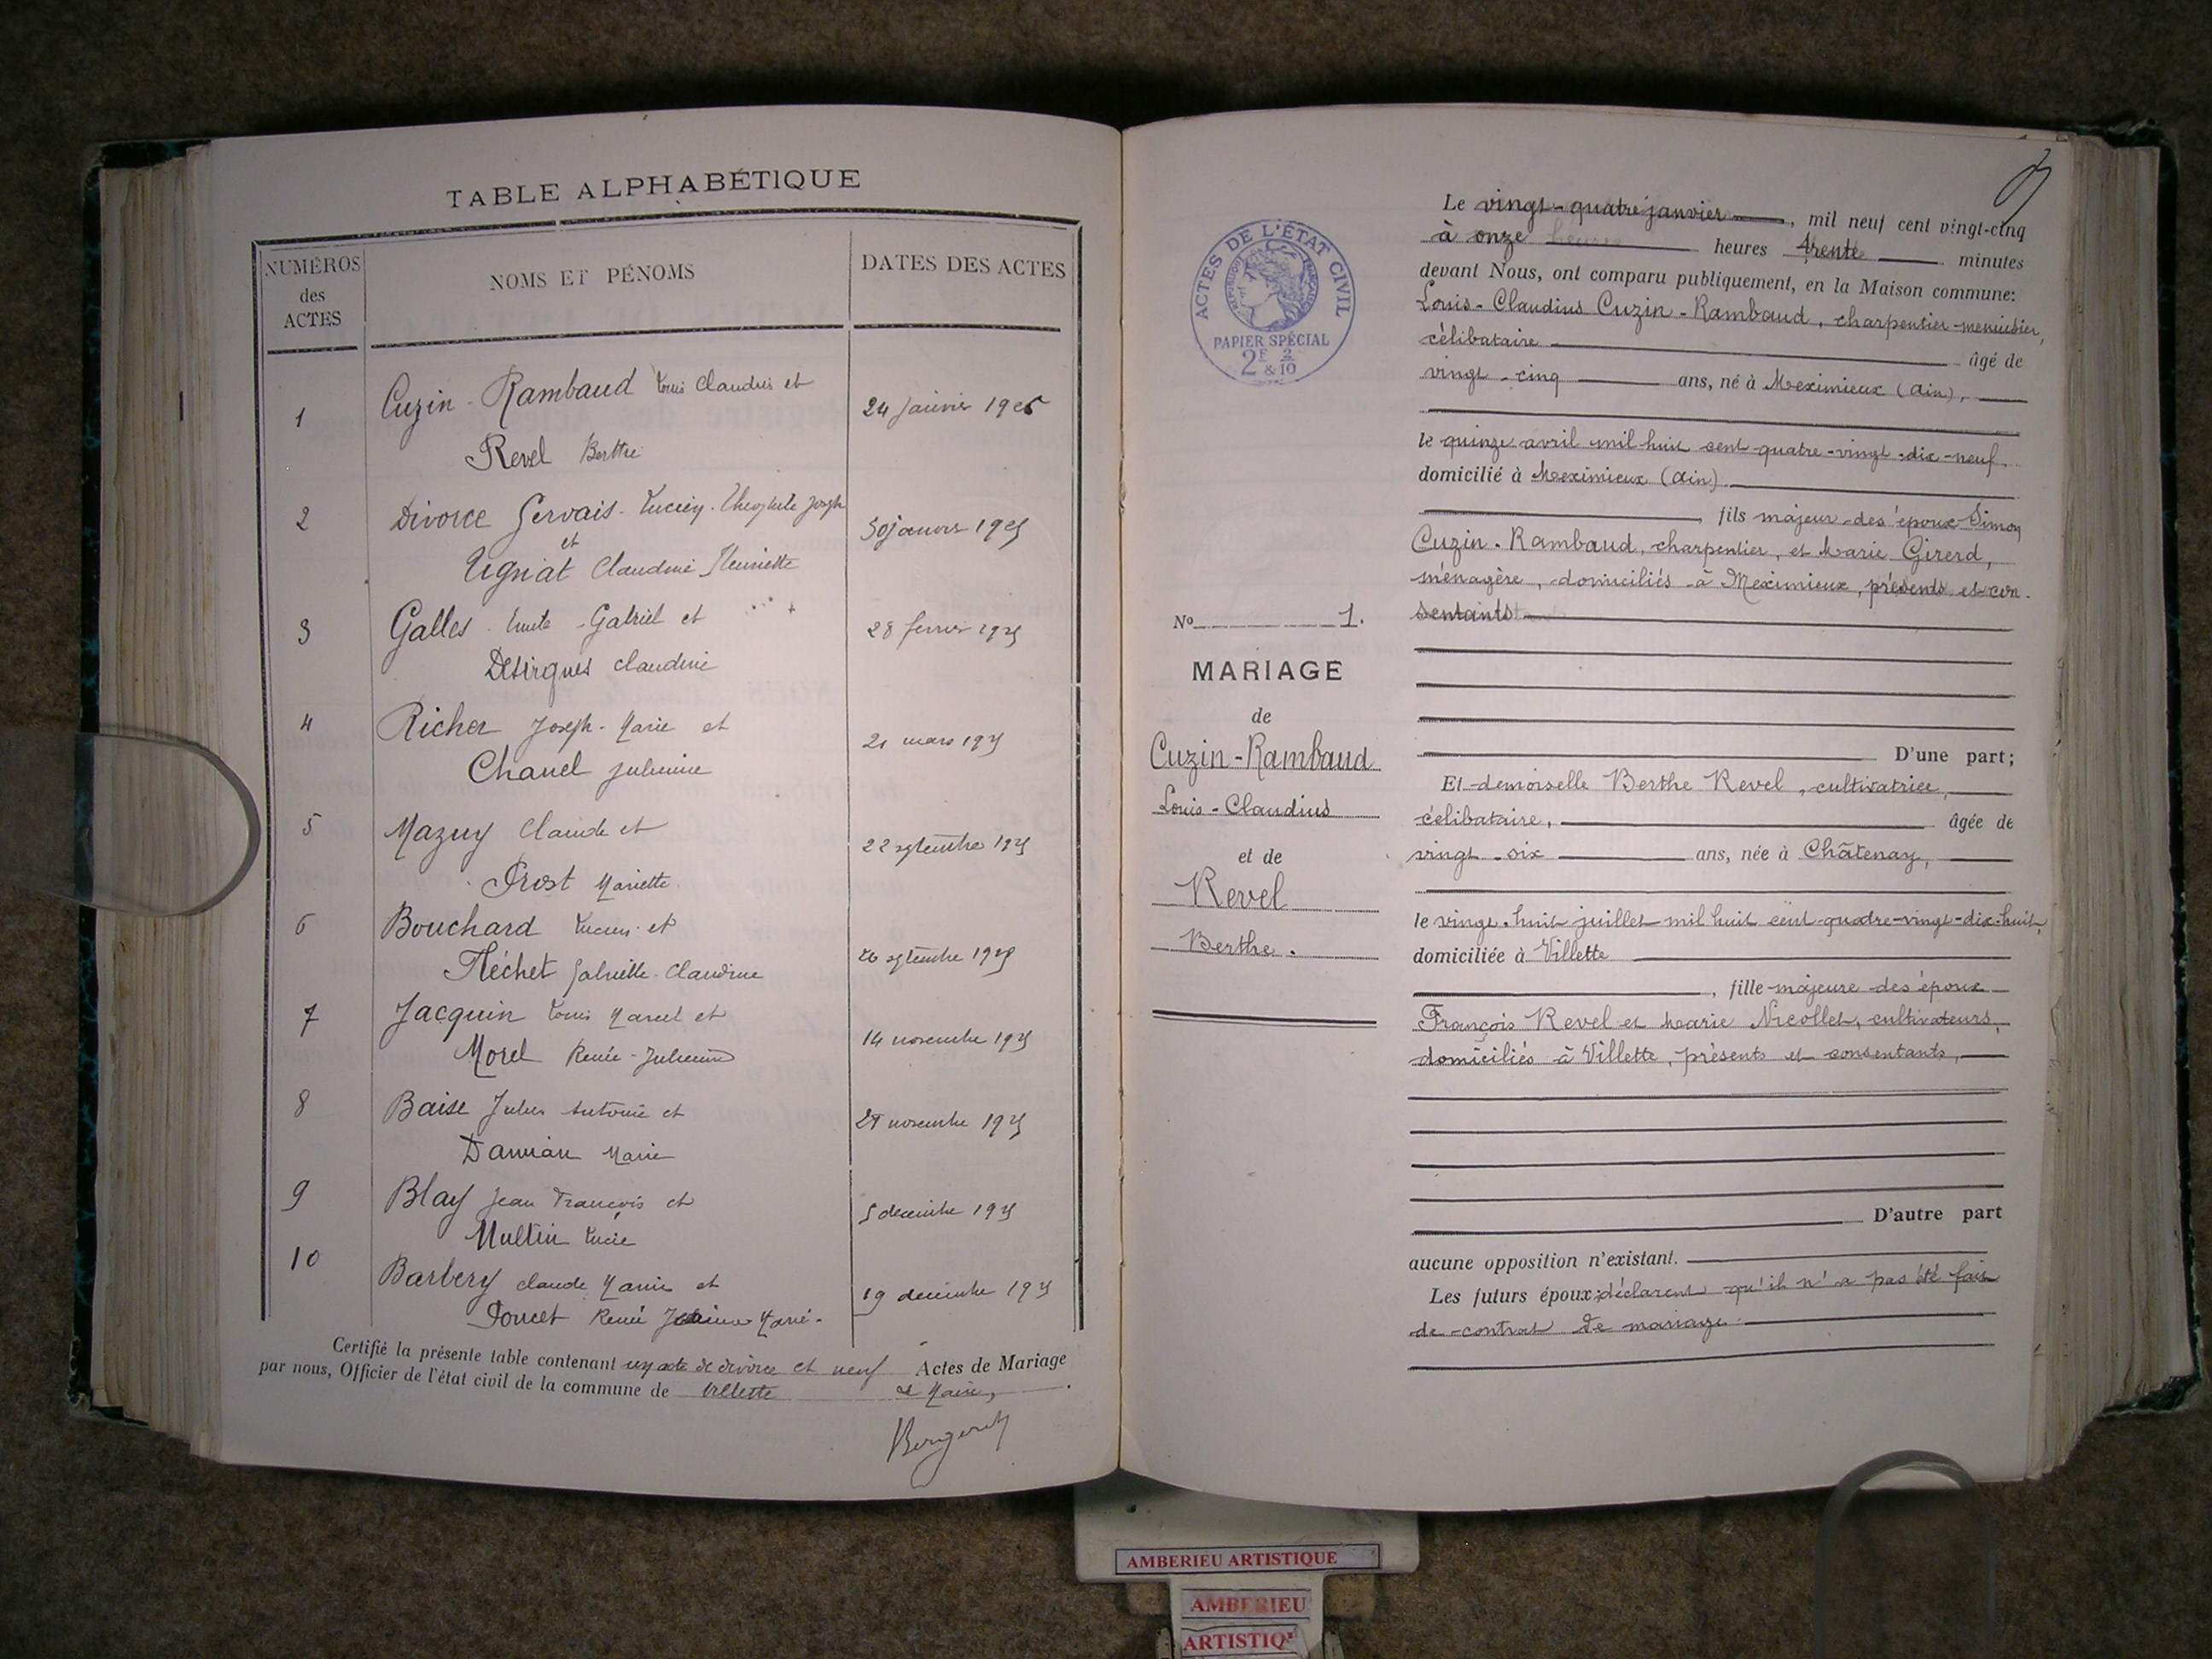 TABLE ALPHABÉTIQUE
NUMÉROS des ACTES
NOMS ET PÉNOMS
DATES DES ACTES
1 Cuzin - Rambaud Louis Claudius et 24 janvier 1925
Revel Berthe
2 Divorce Gervais - Lucien - Théophile Joseph 30 janvier 1925
et
Ugniat Claudine Henriette
3 Galles - - Gabriel et 28 fevrier 1925
Desirgues Claudine
4 Richer Joseph - Marie et 21 mars 1925
Chanel Julienne
5 Mazuy Claude et 22 septembre 1925
Prost Mariette
6 Bouchard Lucien et 26 septembre 1925
Fléchet Gabrielle - Claudine
7 Jacquin Louis Marcel et 14 novembre 1925
Morel Renée - Julienne
8 Baise Jules Antoine et novembre 1925
Damian Marie
9 Blay Jean François et 5 decembre 1925
Multin Lucie
10 Barbery Claude Marie et 19 decembre 1925
Poncet Renée Marie -
Certifié la présente table contenant un acte de divorce et neuf Actes de Mariage
par nous, Officier de l'état civil de la commune de Villette le Maire,
ACTES DE L'ÉTAT CIVIL
RÉPUBLIQUE FRANÇAISE
PAPIER SPÉCIAL
2F 2/10
&
No 1.
MARIAGE
de
Cuzin-Rambaud
Louis-Claudius
et de
Revel
Berthe.
Le vingt-quatre janvier, mil neuf cent vingt-cinq
à onze heures heures trente minutes
devant Nous, ont comparu publiquement, en la Maison commune:
Louis-Claudius Cuzin-Rambaud, charpentier-menuisier,
célibataire âgé de
vingt-cinq ans, né à Meximieux (Ain),
le quinze avril mil huit cent quatre-vingt-dix-neuf,
domicilié à Meximieux (Ain)
, fils majeur des époux Simon
Cuzin-Rambaud, charpentier, et Marie Girerd,
ménagère, domiciliés à Meximieux, présents et con-
sentants
D'une part;
Et demoiselle Berthe Revel, cultivatrice,
célibataire, âgée de
vingt-six ans, née à Châtenay,
le vingt-huit juillet mil huit cent quatre-vingt-dix-huit,
domiciliée à Villette
, fille majeure des époux
François Revel et Marie Nicollet, cultivateurs,
domiciliés à Villette, présents et consentants,
D'autre part
aucune opposition n'existant.
Les futurs époux déclarent qu'il n'a pas été fait
de contrat de mariage
AMBERIEU ARTISTIQUE
AMBERIEU
ARTISTIQ